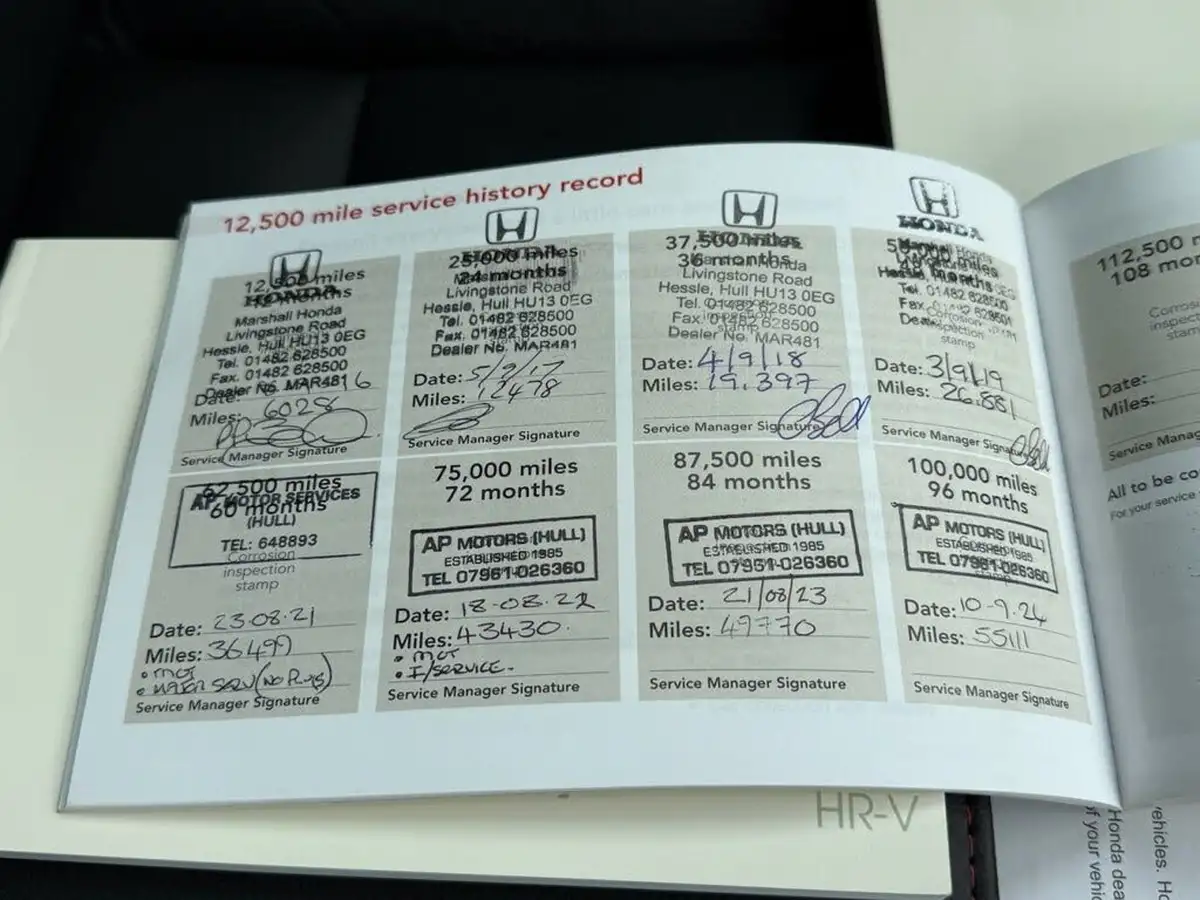 12,500 mile service history record
12,500 miles
HONDA
Marshall Honda
Livingstone Road
Hessle, Hull HU13 0EG
Tel. 01482 628500
Fax. 01482 628500
Dealer No. MAR481
Miles: 6028
Service Manager Signature
25,000 miles
24 months
Livingstone Road
Hessle, Hull HU13 0EG
Tel. 01482 628500
Fax. 01482 628500
Dealer No. MAR481
Date: 5/9/17
Miles: 12478
Service Manager Signature
37,500 miles
36 months
Livingstone Road
Hessle, Hull HU13 0EG
Tel. 01482 628500
Fax. 01482 628500
Dealer No. MAR481
Date: 4/9/18
Miles: 19.397
Service Manager Signature
HONDA
Tel. 01482 628500
Fax. 01482 628500
stamp
Date: 3/9/19
Miles: 26.881
Service Manager
62,500 miles
60 months
AP MOTOR SERVICES
(HULL)
TEL: 648893
Corrosion
inspection
stamp
Date: 23.08.21
Miles: 36499
• MOT
• MAJOR SERV (NO PLUGS)
Service Manager Signature
75,000 miles
72 months
AP MOTORS (HULL)
ESTABLISHED 1985
TEL 07951-026360
Date: 18-08.22
Miles: 43430.
• MOT
• I/SERVICE.
Service Manager Signature
87,500 miles
84 months
AP MOTORS (HULL)
ESTABLISHED 1985
TEL 07951-026360
Date: 21/08/23
Miles: 49770
Service Manager Signature
100,000 miles
96 months
AP MOTORS (HULL)
ESTABLISHED 1985
TEL 07951-026360
Date: 10-9.24
Miles: 55111
Service Manager Signature
112,500
108
Date:
Miles:
Service
All to be
For your service
HR-V
ehicles.
Honda
of your